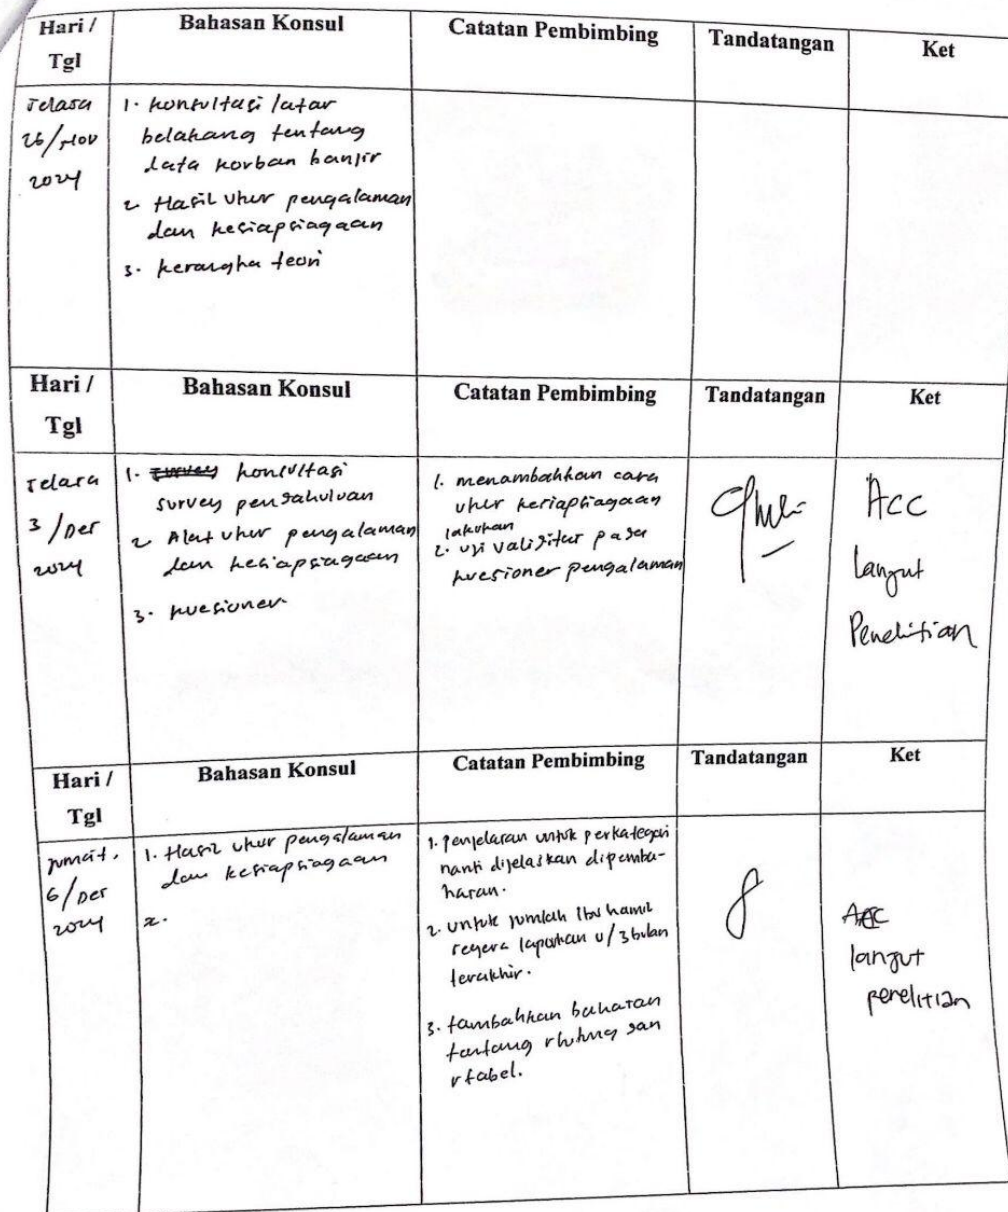 Hari / Tgl Bahasan Konsul Catatan Pembimbing Tandatangan Ket
Selasa
26/Nov
2024
1. konsultasi latar
belakang tentang
data korban banjir
2 Hasil ukur pengalaman
dan kesiapsiagaan
3. kerangka teori
Hari / Tgl Bahasan Konsul Catatan Pembimbing Tandatangan Ket
Selasa
3/Des
2024
1. survey konsultasi
survey pendahuluan
2 Alat ukur pengalaman
dan kesiapsiagaan
3. kuesioner
1. menambahkan cara
ukur kesiapsiagaan
lakukan
2. uji validitas pada
kuesioner pengalaman
Acc
Lanjut
Penelitian
Hari / Tgl Bahasan Konsul Catatan Pembimbing Tandatangan Ket
Jumat,
6/Des
2024
1. Hasil ukur pengalaman
dan kesiapsiagaan
2.
1. Penjelasan untuk perkategori
nanti dijelaskan dipemba-
hasan.
2. untuk jumlah Ibu hamil
segera lapukan u/3 bulan
terakhir.
3. tambahkan bahasan
tentang rhitung dan
rtabel.
ACC
lanjut
penelitian